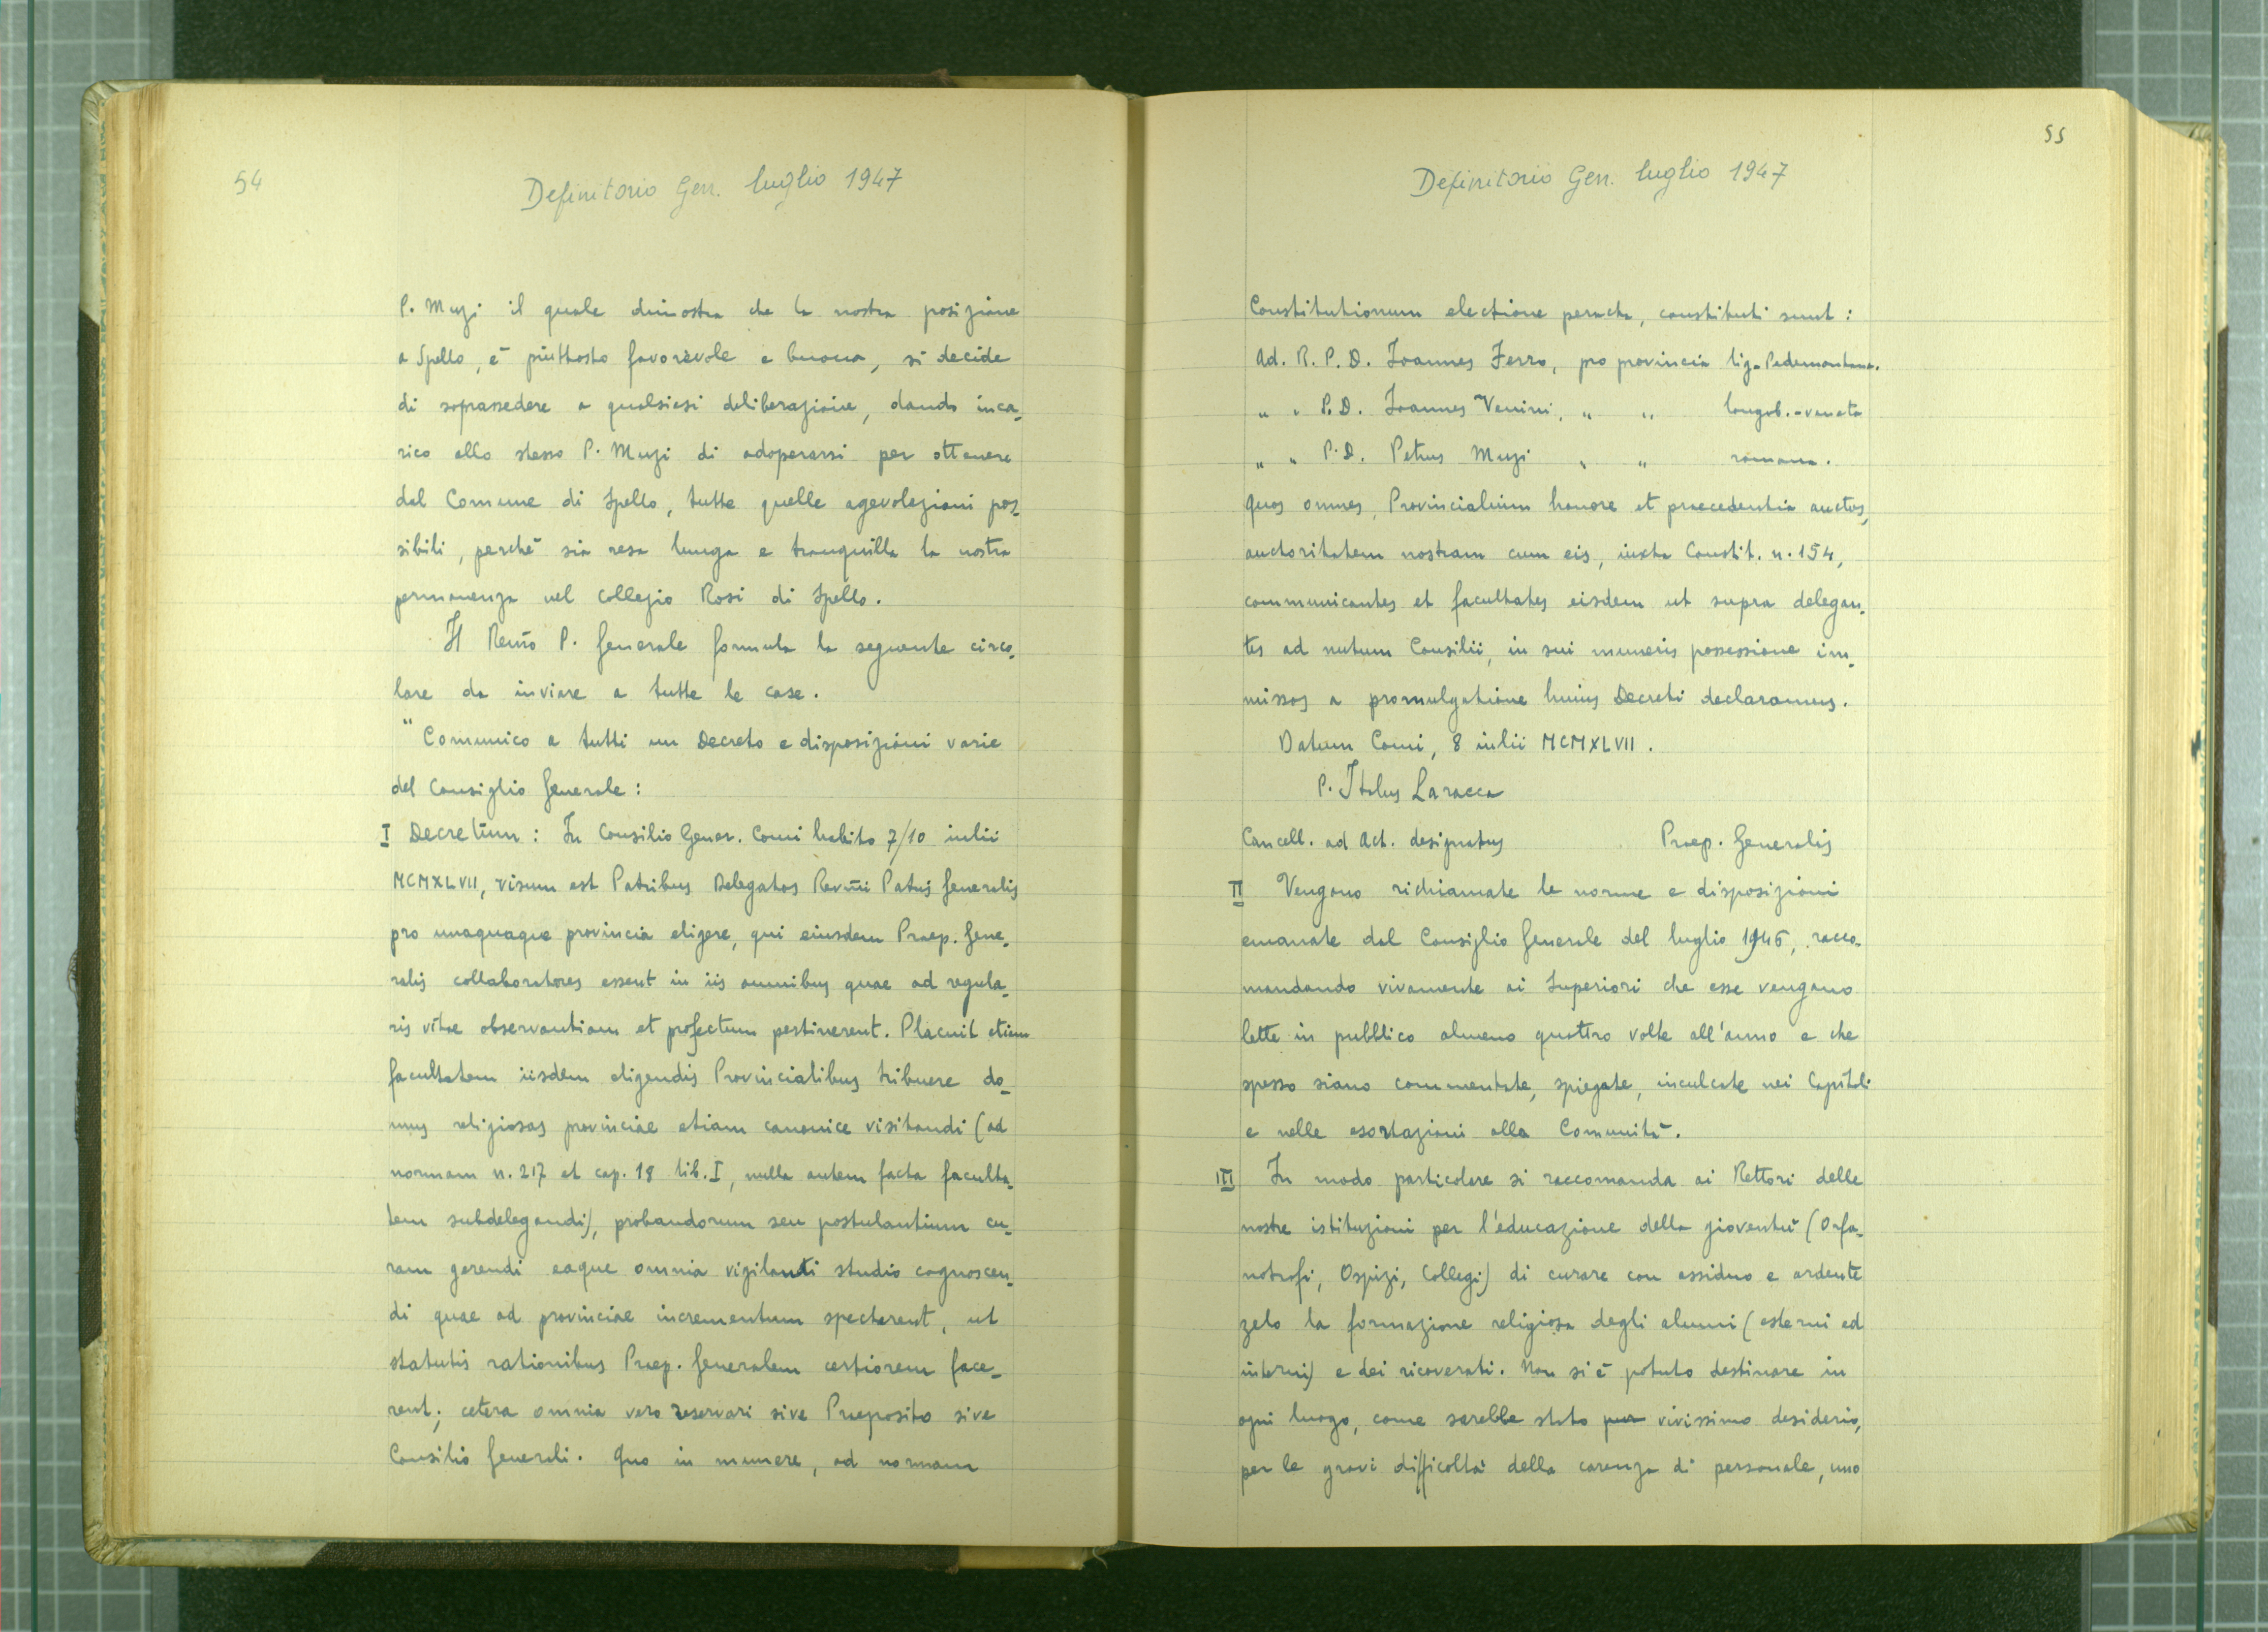 54
Definitorio Gen. luglio 1947
P. Muzi il quale dimostra che la nostra posizione
a Spello, è piuttosto favorevole e buona, si decide
di soprassedere a qualsiasi deliberazione, dando inca-
rico allo stesso P. Muzi di adoperarsi per ottenere
dal Comune di Spello, tutte quelle agevolazioni pos-
sibili, perchè sia resa lunga e tranquilla la nostra
permanenza nel Collegio Rosi di Spello.
Il Rev̄mo P. Generale formula la seguente circo-
lare da inviare a tutte le case.
"Comunico a tutti un Decreto e disposizioni varie
del Consiglio Generale:
I Decretum: In Consilio Gener. Comi habito 7/10 iulii
MCMXLVII, visum est Patribus Delegatos Rev̄mi Patris Generalis
pro unaquaque provincia eligere, qui eiusdem Praep. Gene-
ralis collaboratores essent in iis omnibus quae ad regula-
ris vitae observantiam et profectum pertinerent. Placuit etiam
facultatem iisdem eligendis Provincialibus tribuere do-
mus religiosas provinciae etiam canonice visitandi (ad
normam n. 217 et cap. 18 lib. I, nulla autem facta faculta-
tem subdelegandi), probandorum seu postulantium cu-
ram gerendi eaque omnia vigilanti studio cognoscen-
di quae ad provinciae incrementum spectarent, ut
statutis rationibus Praep. Generalem certiorem face-
rent; cetera omnia vero reservari sive Praeposito sive
Consilio Generali. Quo in munere, ad normam
55
Definitorio Gen. luglio 1947
Constitutionum electione peracta, constituti sunt:
Ad. R. P. D. Joannes Ferro, pro provincia lig-Pedemontana.
" " P. D. Joannes Venini, " " longob.-veneta
" " P. D. Petrus Muzi " " romana.
Quos omnes, Provincialium honore et praecedentia auctos,
auctoritatem nostram cum eis, iuxta Constit. n. 154,
communicantes et facultates eisdem ut supra delegan-
tes ad nutum Consilii, in sui muneris possessione im-
missos a promulgatione huius Decreti declaramus.
Datum Comi, 8 iulii MCMXLVII.
P. Italus Laracca
Cancell. ad Act. designatus Praep. Generalis
II Vengano richiamate le norme e disposizioni
emanate dal Consiglio Generale del luglio 1946, racco-
mandando vivamente ai Superiori che esse vengano
lette in pubblico almeno quattro volte all'anno e che
spesso siano commentate, spiegate, inculcate nei Capitoli
e nelle esortazioni alla Comunità.
III In modo particolare si raccomanda ai Rettori delle
nostre istituzioni per l'educazione della gioventù (Orfa-
notrofi, Ospizi, Collegi) di curare con assiduo e ardente
zelo la formazione religiosa degli alunni (esterni ed
interni) e dei ricoverati. Non si è potuto destinare in
ogni luogo, come sarebbe stato pur vivissimo desiderio,
per le gravi difficoltà della carenza di personale, uno